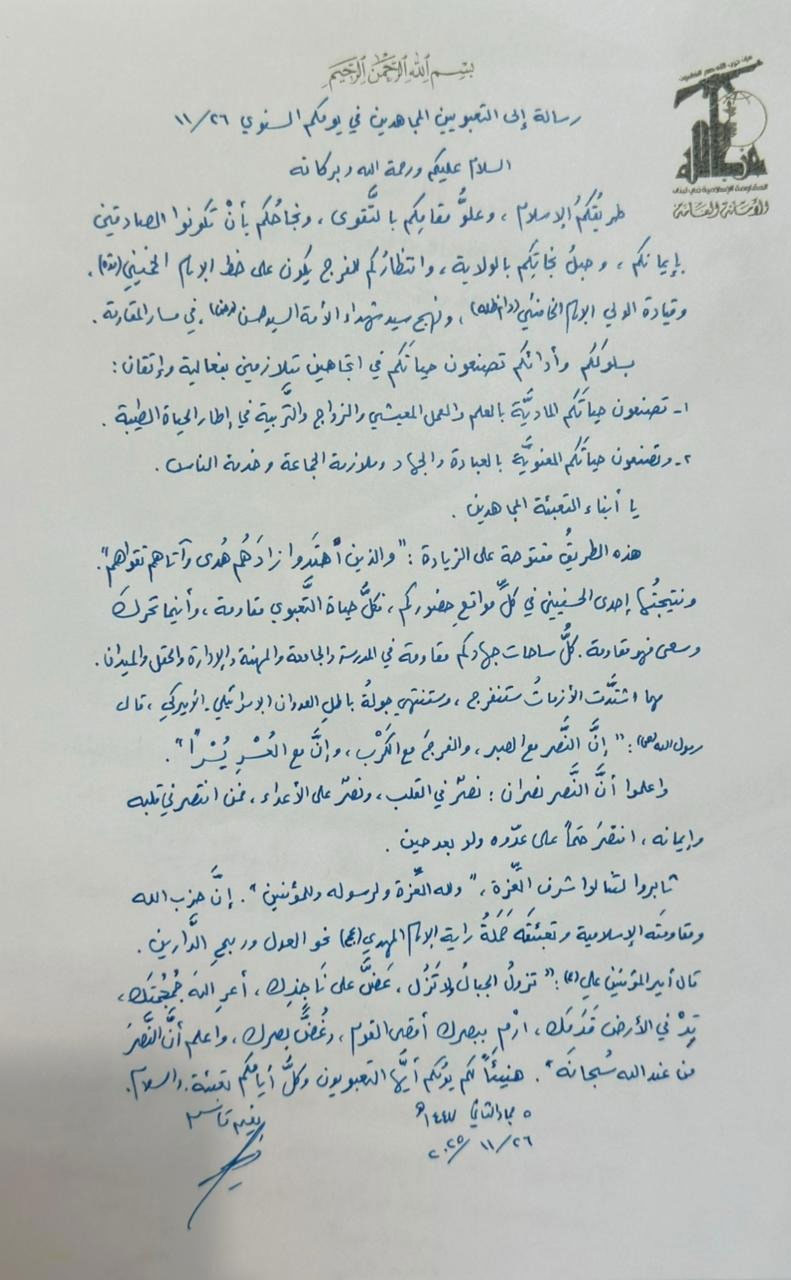 بسم الله الرحمن الرحيم
حزب الله
المقاومة الإسلامية في لبنان
الأمانة العامة
رسالة إلى التعبويين المجاهدين في يومكم السنوي ١١/٢٦
السلام عليكم ورحمة الله وبركاته
طريقُكُم الإسلام، وعلوُّ مقامِكم بالتَّقوى، ونجاحُكم بأنْ تكونوا الصادقين
بإيمانكم، وحبلُ نجاتِكم بالولاية، وانتظارُكم للفرج يكون على خط الإمام الخميني (قده).
وقيادة الولي الإمام الخامنئي (دام ظله)، ونهج سيد شهداء الأمة السيد حسن (رض)، في مسار المقاومة.
بسلوككم وأدائكم تصنعون حياتَكم في اتجاهين متلازمين بفعالية وإتقان:
١- تصنعون حياتَكم الماديَّة بالعلم والعمل المعيشي والزواج والتَّربية في إطار الحياة الطيبة.
٢- وتصنعون حياتَكم المعنويَّة بالعبادة والجهاد وملازمة الجماعة وخدمة الناس.
يا أبناء التعبئة المجاهدين.
هذه الطريقُ مفتوحة على الزيادة: "والذين اهتَدَوا زادَهُم هُدى وآتاهم تقواهم".
ونتيجتُها إحدى الحسنيين في كلِّ مواقعِ حضوركم، فكلُّ حياة التَّعبوي مقاومة، وأينما تحرك
وسعى فهو مقاومة. كلُّ ساحات جهادكم مقاومة في المدرسة والجامعة والمهنة والإدارة والحقل والميدان.
مهما اشتدَّت الأزماتُ ستنفرج، وستنتهي جولةُ باطل العدوان الإسرائيلي-الأميركي، قال
رسول الله (ص): "إنَّ النَّصر مع الصبر، والفرجَ مع الكَرْب، وإنَّ مع العُسْرِ يُسْرًا".
واعلموا أنَّ النَّصر نصران: نصرٌ في القلب، ونصرٌ على الأعداء، فمن انتصر في قلبه
وإيمانه، انتصرَ حتماً على عدّوه ولو بعد حين.
ثابروا لتنالوا شرف العِّزة، "ولله العِّزة ولرسوله وللمؤمنين". إنَّ حزب الله
ومقاومتَه الإسلامية وتعبئتَه حَمَلَةُ راية الإمام المهدي (عج) نحو العدل وربحِ الدَّارين.
قال أمير المؤمنين علي (ع): "تزولُ الجبالُ ولا تَزُل، عَضَّ على نَاجذِك، أعرِ اللهَ جُمجُمتَك،
تِدْ في الأرضِ قَدَمَك، ارْمِ ببصرك أقصى القوم، وغُضَّ بصرك، واعلم أنَّ النَّصرَ
من عند الله سُبحانَه". هنيئاً لكم يومُكم أيُّها التعبويون وكلُّ أيامكم تعبئة. والسلام.
٥ جماد الثاني ١٤٤٧هـ
٢٠٢٥/١١/٢٦
نعيم قاسم